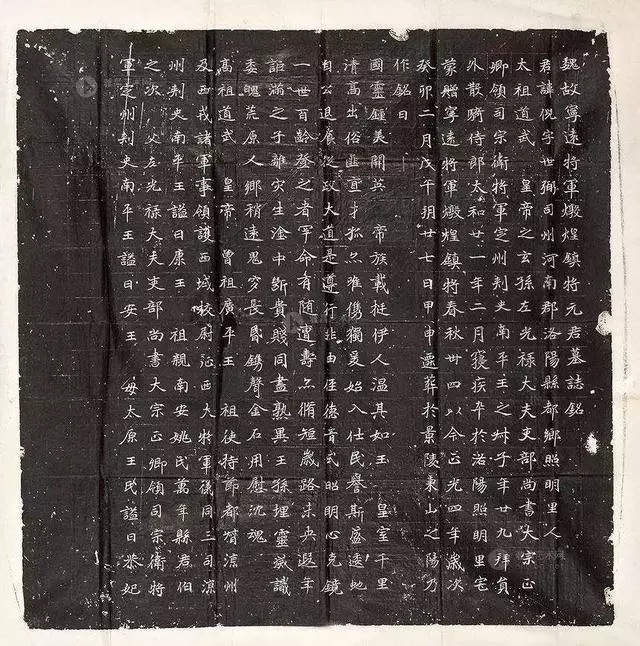 魏故寧遠將軍燉煌鎮將元君墓誌銘
君諱倪字世弼司州河南郡洛陽縣都鄉照明里人
太祖道武 皇帝之玄孫左光祿大夫吏部尚書大宗正
卿領司宗衛將軍定州刺史南平王之叔子年廿九拜員
外散騎侍郎太和廿一年二月寢疾卒於洛陽照明里宅
蒙贈寧遠將軍燉煌鎮將春秋卅四以今正光四年歲次
癸卯二月戊午朔廿七日甲申遷葬於景陵東山之陽乃
作銘曰
國靈鍾美開英 帝族載挺伊人溫其如玉 皇室千里
清高出俗匪宜才孤亦唯儁獨爰始入仕民譽斯盛逶虵
自公退食從政大道是遵行非由俓德音式昭明心克鏡
一世百齡發之者罕命有隨遭壽亦脩短歲路未央遐年
詎滿之子離灾生塗中斷貴賤同盡孰異王孫埋靈識
委魄荒原人鄉稍遠鬼穸長昏鐫聲金石用慰沉魂
高祖道武 皇帝 曾祖廣平王 祖使持節都督涼州
及西戎諸軍事領護西域校尉征西大將軍儀同三司涼
州刺史南平王謚曰康王 祖親南安姚氏萬年縣君伯
之次 父左光祿大夫吏部尚書大宗正卿領司宗衛將
軍定州刺史南平王謚曰安王 母太原王氏謚曰恭妃